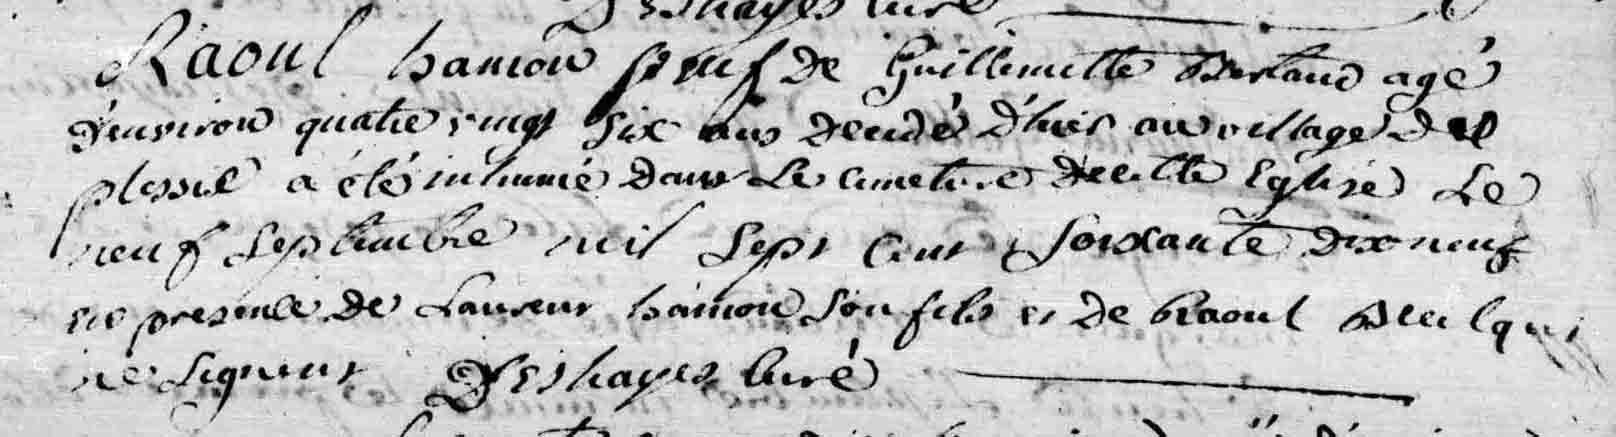 Deshayes curé
Raoul hamon veuf de Guillemette Bertaud agé
d'environ quatre vingt six ans decedé d'hier au village du
plessix a été inhumé dans le cimetiere de cette Eglise le
neuf septembre mil sept cent soixante dix neuf
en presence de Laurent hamon son fils et de Raoul qui
ne signent Deshayes curé